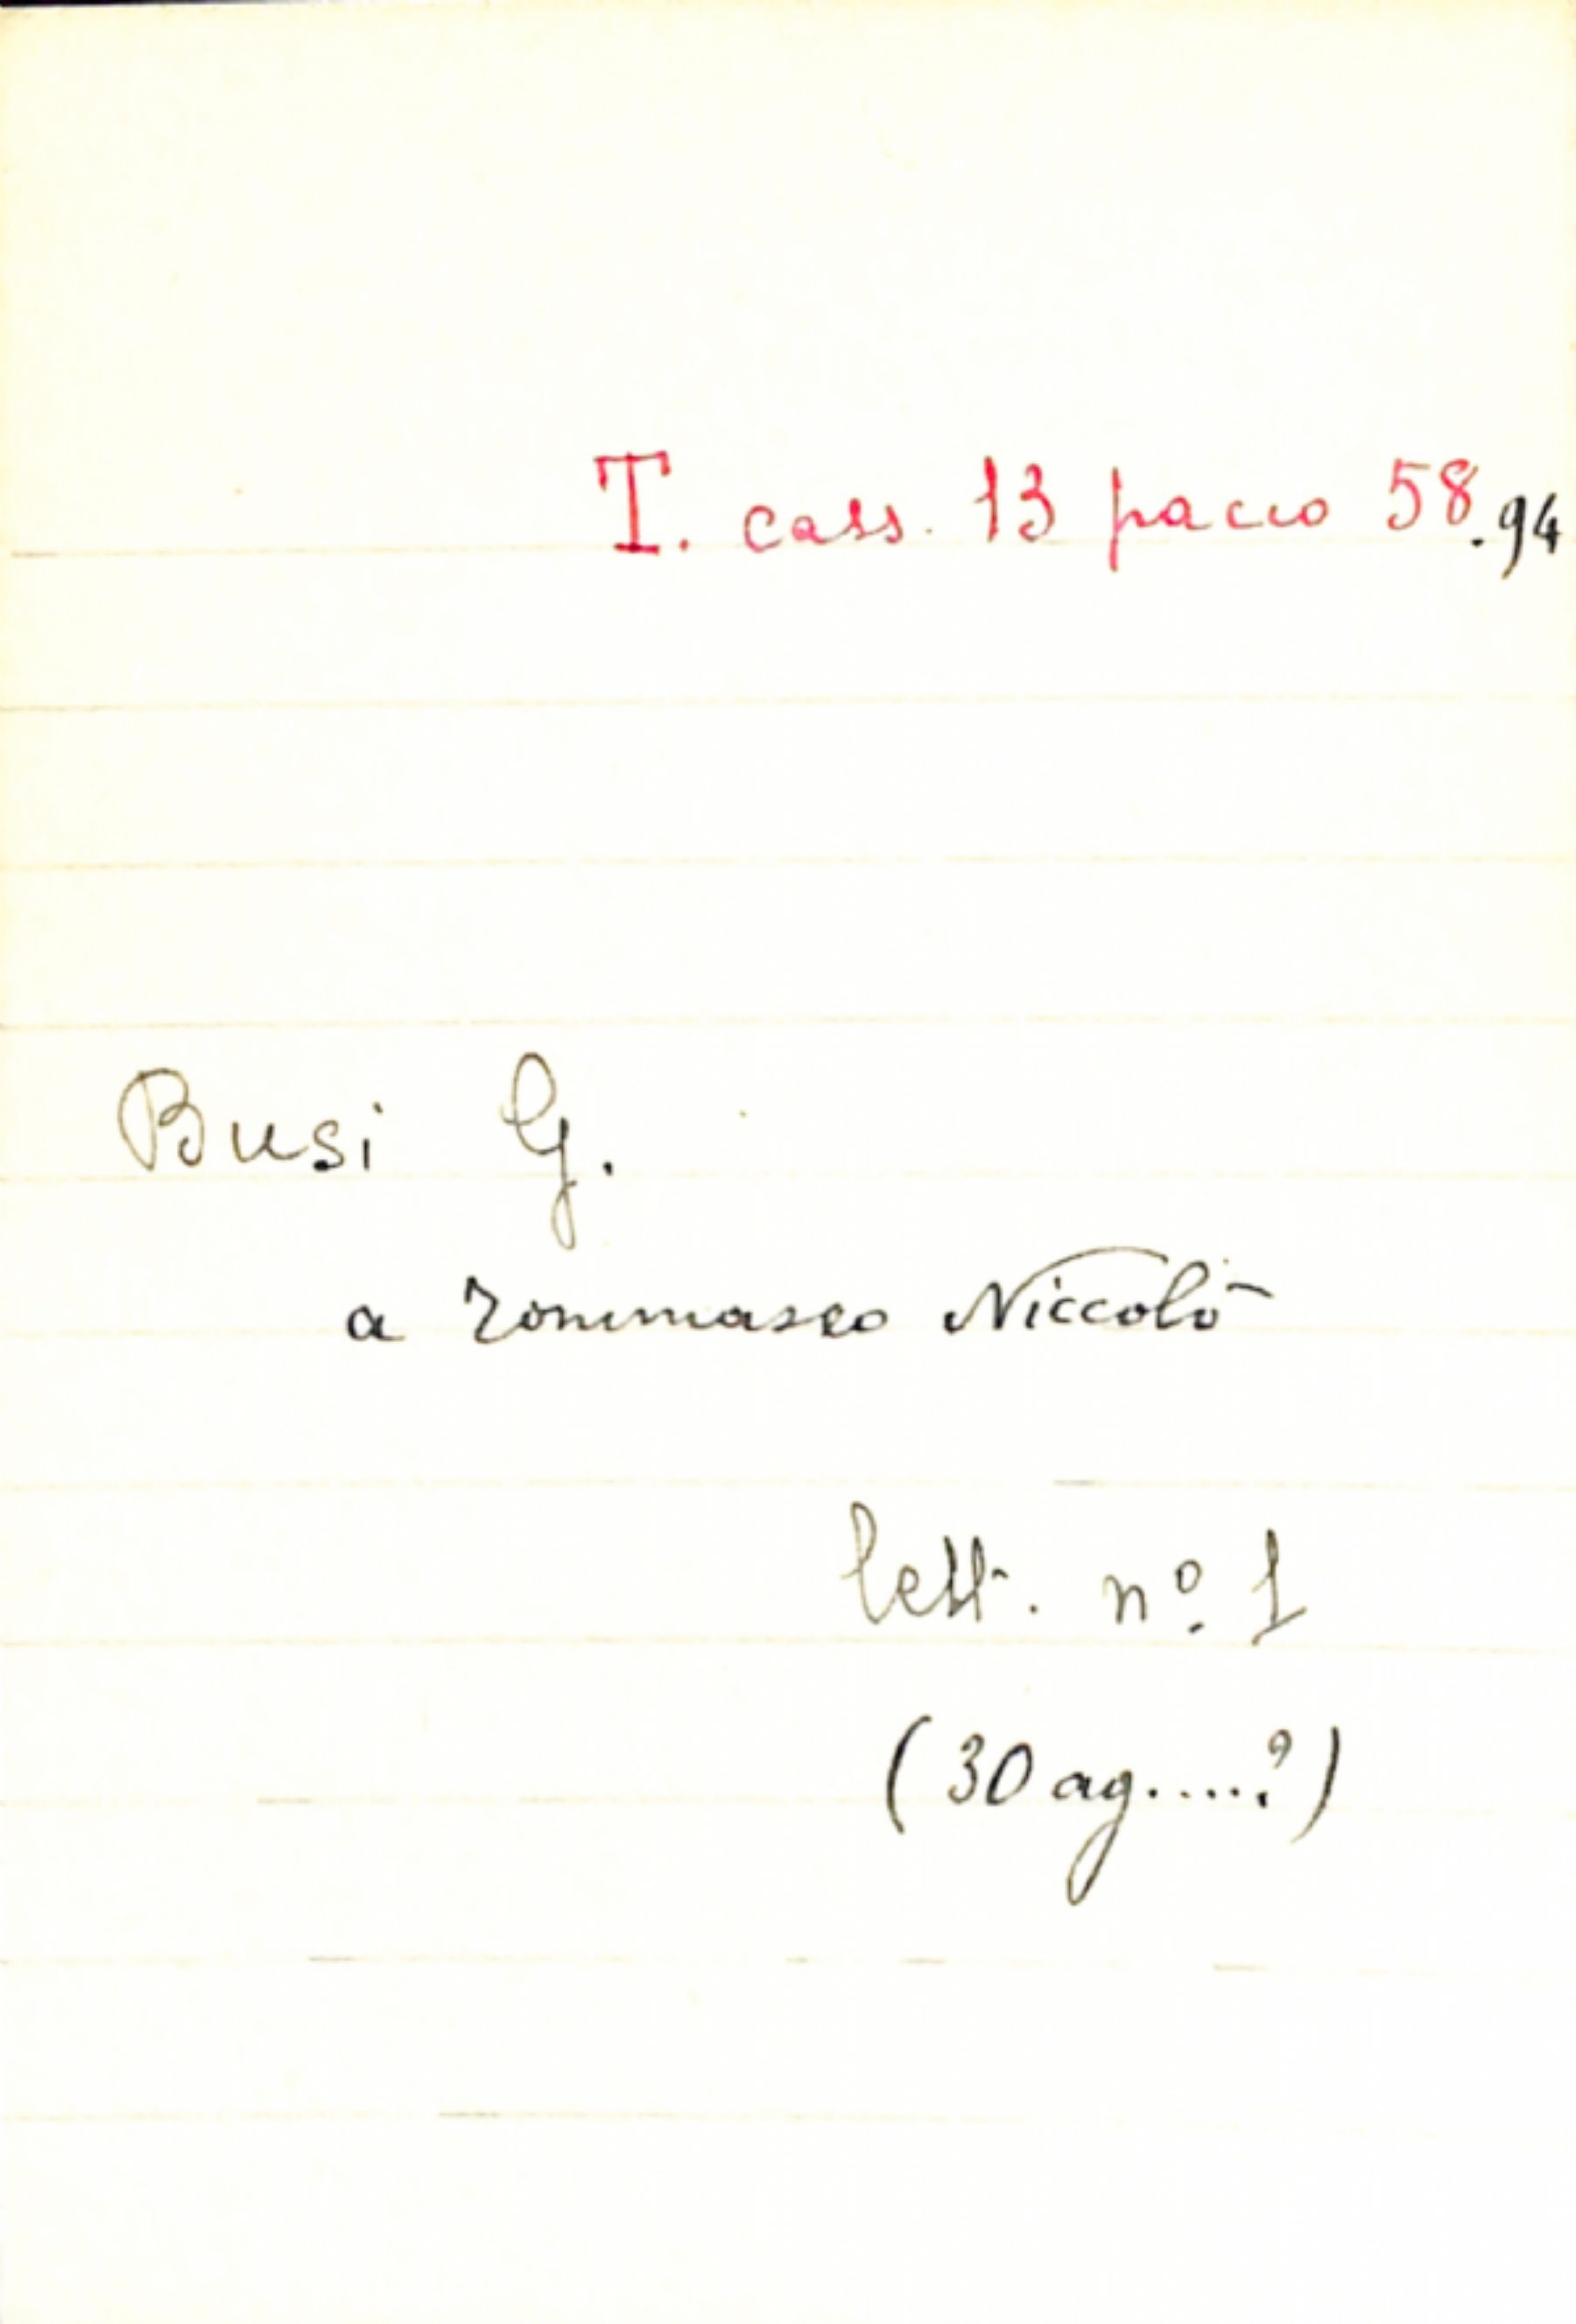 T. cass. 13 pacco 58.94
Busi G.
a Tommaseo Niccolò
lett. nº 1
(30 ag.....?)